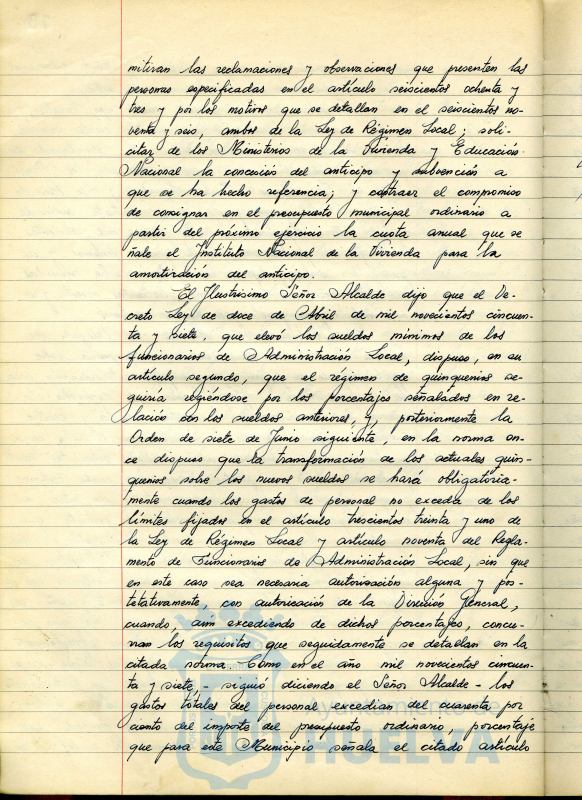 mitiran las reclamaciones y observaciones que presenten las
personas especificadas en el artículo seiscientos ochenta y
tres y por los motivos que se detallan en el seiscientos no-
venta y seis, ambos de la Ley de Régimen Local; soli-
citar de los Ministerios de la Vivienda y Educación
Nacional la concesión del anticipo y subvención a
que se ha hecho referencia; y contraer el compromiso
de consignar en el presupuesto municipal ordinario a
partir del próximo ejercicio la cuota anual que se
ñale el Instituto Nacional de la Vivienda para la
amortización del anticipo.
El Ilustrísimo Señor Alcalde dijo que el De-
creto Ley de doce de Abril de mil novecientos cincuen-
ta y siete, que elevó los sueldos mínimos de los
funcionarios de Administración Local, dispuso, en su
artículo segundo, que el régimen de quinquenios se-
guiría rigiéndose por los porcentajes señalados en re-
lación con los sueldos anteriores, y, posteriormente la
Orden de siete de Junio siguiente, en la norma on-
ce dispuso que la transformación de los actuales quin-
quenios sobre los nuevos sueldos se hará obligatoria-
mente cuando los gastos de personal no exceda de los
límites fijados en el artículo trescientos treinta y uno de
la Ley de Régimen Local y artículo noventa del Regla-
mento de Funcionarios de Administración Local, sin que
en este caso sea necesaria autorización alguna y po-
tetativamente, con autorización de la Dirección General,
cuando aun excediendo de dichos porcentajes, concu-
rran los requisitos que seguidamente se detallan en la
citada norma. Como en el año mil novecientos cincuen-
ta y siete, - siguió diciendo el Señor Alcalde - los
gastos totales del personal excedían del cuarenta por
ciento del importe del presupuesto ordinario, porcentaje
que para este Municipio señala el citado artículo
HUELVA